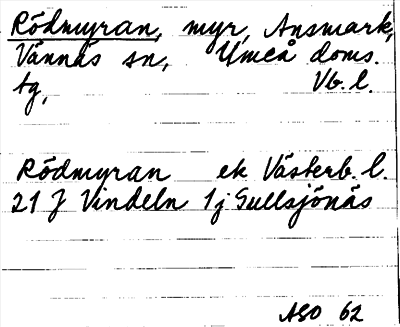 Rödmyran, myr, Ansmark,
Vännäs sn, Umeå doms.
tg, Vb. l.
Rödmyran ek Västerb. l.
21 J Vindeln 1j Gullsjönäs
ASO 62